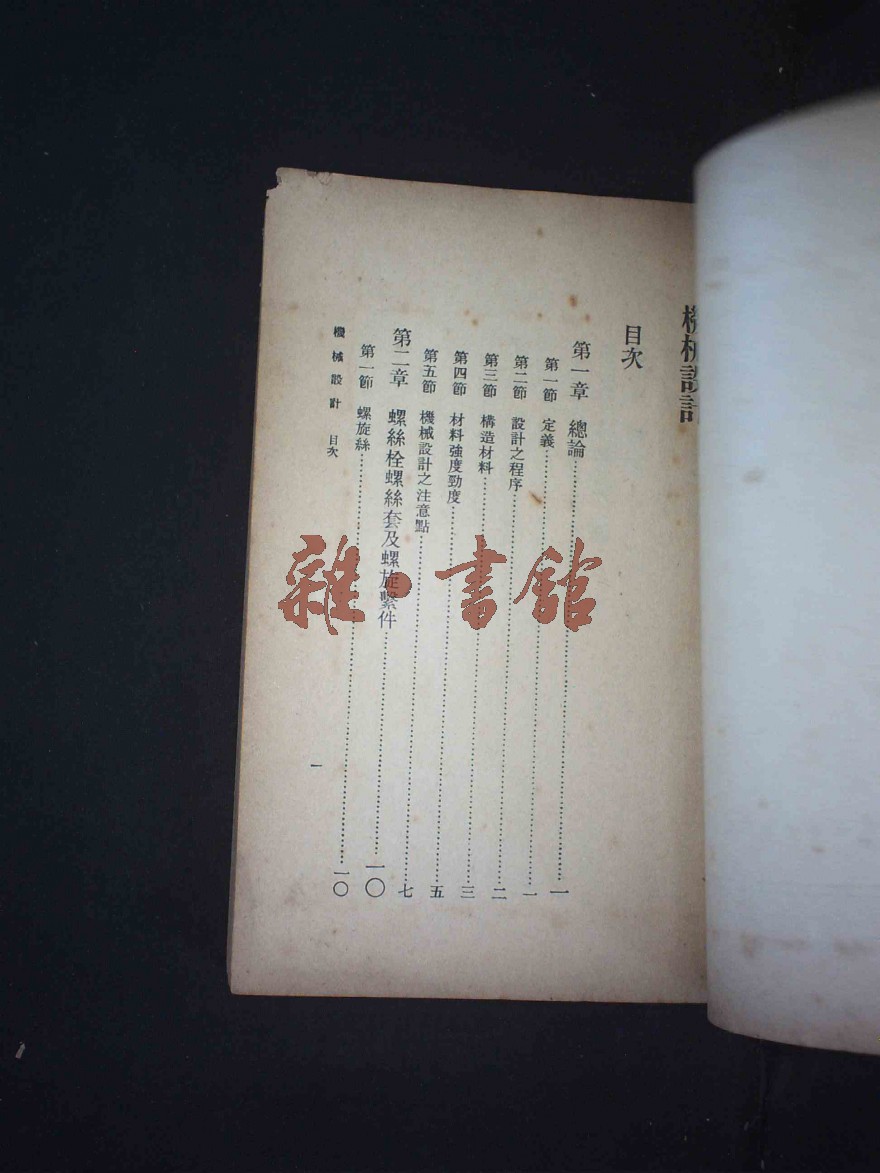 機械設計
目次
第一章 總論……一
第一節 定義……一
第二節 設計之程序……二
第三節 構造材料……三
第四節 材料強度勁度……五
第五節 機械設計之注意點……七
第二章 螺絲栓螺絲套及螺旋繫件……一〇
第一節 螺旋絲……一〇
機械設計 目次
一
雜·書館